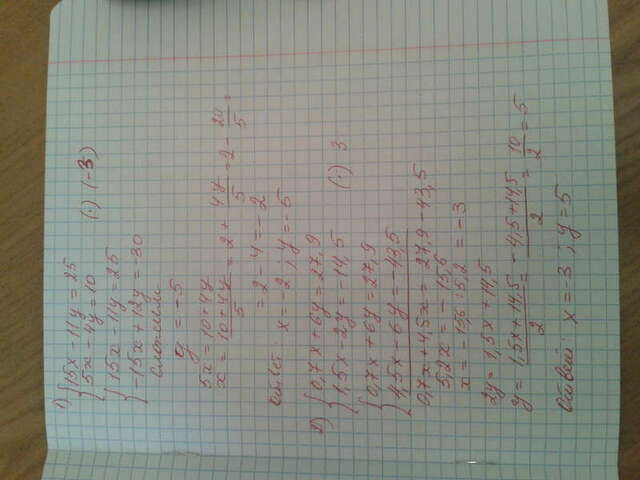 1) { 15x - 11y = 25
{ 5x - 4y = 10 (·) (-3)
{ 15x - 11y = 25
{ -15x + 12y = -30
Сложили
y = -5
5x = 10 + 4y
x = (10 + 4y)/5 = 2 + 4y/5 = 2 - 20/5 =
= 2 - 4 = -2
Ответ: x = -2 ; y = -5
2) { 0,7x + 6y = 27,9
{ 1,5x - 2y = -14,5 (·) 3
{ 0,7x + 6y = 27,9
{ 4,5x - 6y = -43,5
0,7x + 4,5x = 27,9 - 43,5
5,2x = -15,6
x = -15,6 : 5,2 = -3
2y = 1,5x + 14,5
y = (1,5x + 14,5)/2 = (-4,5 + 14,5)/2 = 10/2 = 5
Ответ: x = -3 ; y = 5